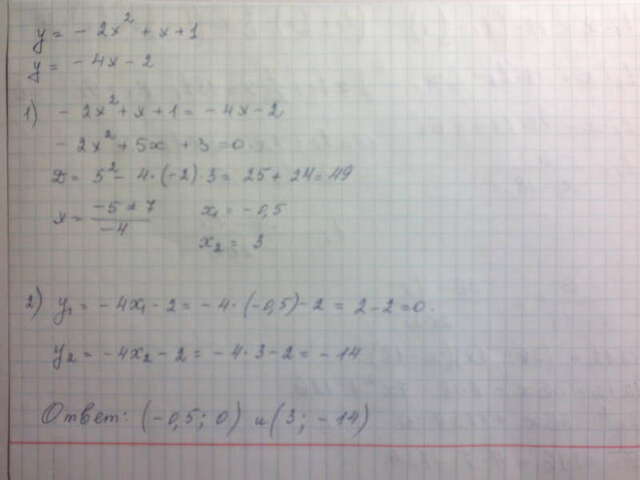 y = - 2x² + x + 1
y = - 4x - 2
1) - 2x² + x + 1 = - 4x - 2
- 2x² + 5x + 3 = 0
D = 5² - 4·(-2)·3 = 25 + 24 = 49
x = (-5 ± 7)/(-4) x₁ = - 0,5
x₂ = 3
2) y₁ = - 4x₁ - 2 = - 4·(-0,5) - 2 = 2 - 2 = 0.
y₂ = - 4x₂ - 2 = - 4·3 - 2 = - 14
Ответ: (-0,5; 0) и (3; - 14)